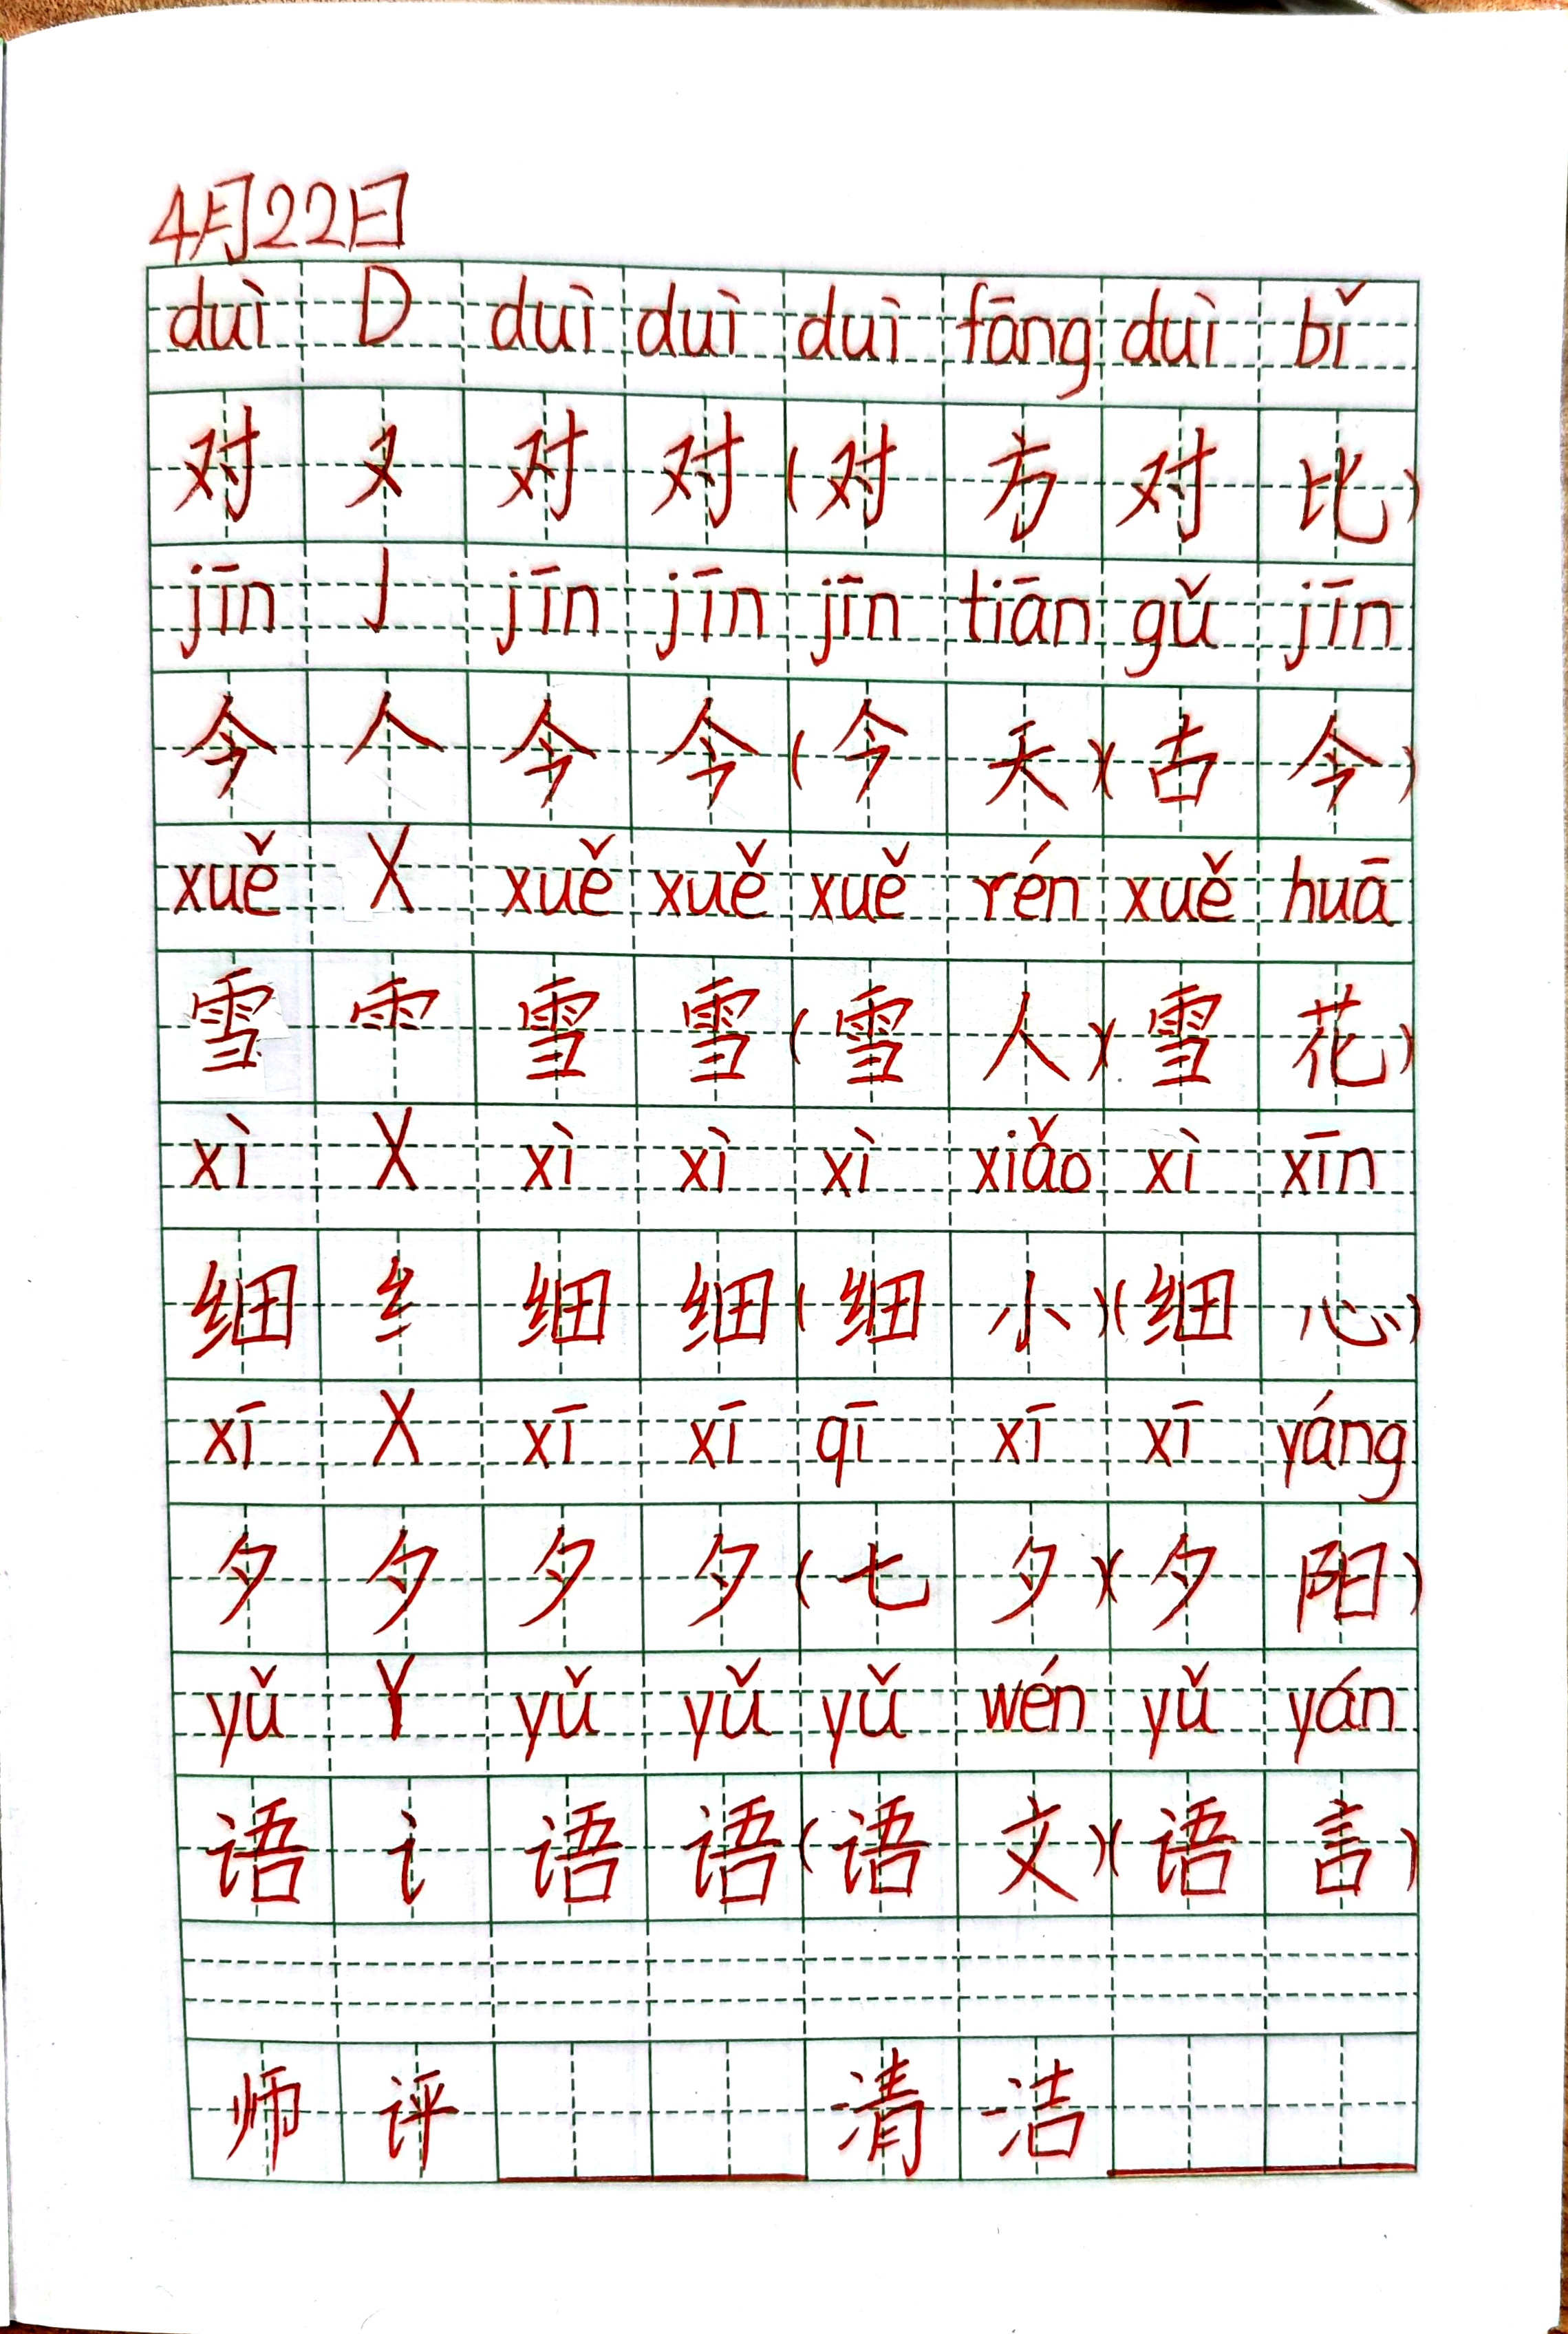 4月22日
duì D duì duì duì fāng duì bǐ
对 又 对 对 (对 方 对 比)
jīn J jīn jīn jīn tiān gǔ jīn
今 人 今 今 (今 天)(古 今)
xuě X xuě xuě xuě rén xuě huā
雪 ⻗ 雪 雪 (雪 人)(雪 花)
xì X xì xì xì xiǎo xì xīn
细 纟 细 细 (细 小)(细 心)
xī X xī xī qī xī xī yáng
夕 夕 夕 夕 (七 夕)(夕 阳)
yǔ Y yǔ yǔ yǔ wén yǔ yán
语 讠 语 语 (语 文)(语 言)
师 评 清 洁